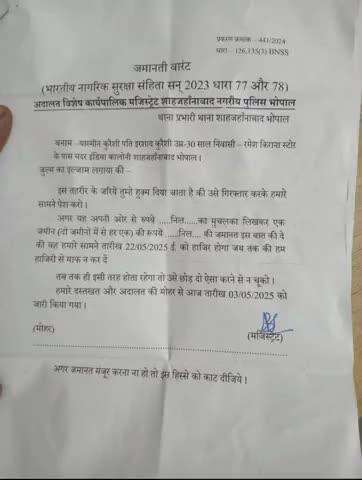 प्रकरण क्रमांक – 441/2024
धारा – 126,135(3) BNSS
जमानती वारंट
(भारतीय नागरिक सुरक्षा संहिता सन् 2023 धारा 77 और 78)
अदालत विशेष कार्यपालिक मजिस्ट्रेट शाहजहाँनाबाद नगरीय पुलिस भोपाल
थाना प्रभारी थाना शाहजहाँनाबाद भोपाल
बनाम –यास्मीन कुरैशी पति इरशाद कुरैशी उम्र-30 साल निवासी – रमेश किराना स्टोर
के पास मदर इंडिया कालोनी शाहजहाँनाबाद भोपाल।
जुल्म का इल्जाम लगाया की –
इस तहरीर के जरिये तुम्हे हुक्म दिया जाता है की उसे गिरफ्तार करके हमारे
सामने पेश करो।
अगर यह अपनी ओर से रुपये .....निल.....का मुचलका लिखकर एक
जमीन (दो जमीनो में से हर एक) की रुपये .....निल.... की जमानत इस बात की दे
की वह हमारे सामने तारीख 22/05/2025 ई. को हाजिर होगा जब तक की हम
हाजिरी से माफ न कर दें
तब तक ही इसी तरह होता रहेगा तो उसे छोड़ दो ऐसा करने से न चूको।
हमारे दस्तखत और अदालत की मोहर से आज तारीख 03/05/2025 को
जारी किया गया।
(मोहर)
(मजिस्ट्रेट)
अगर जमानत मंजूर करना ना हो तो इस हिस्से को काट दीजिये।